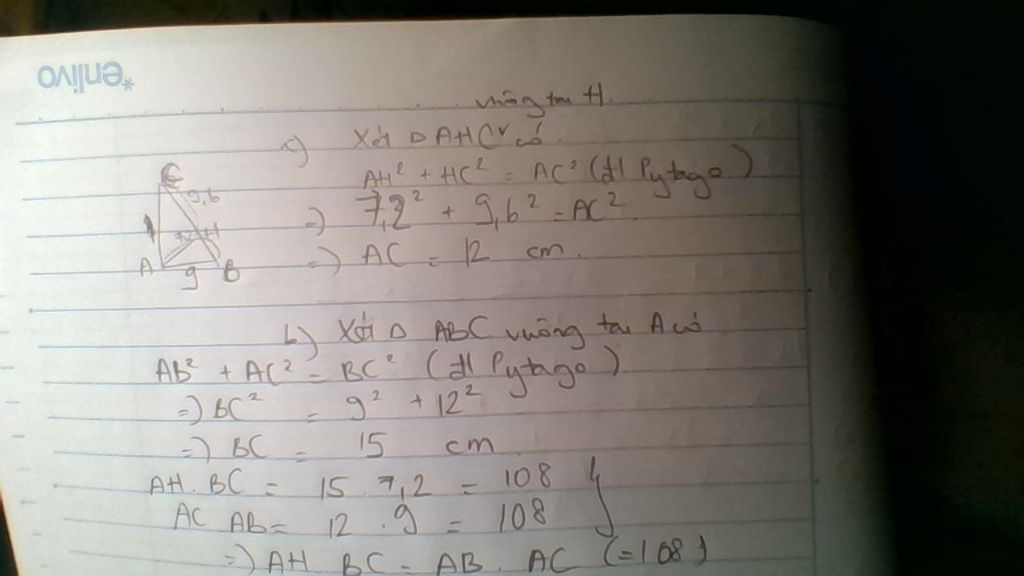 *enlivo
vuông tại H
c) Xét Δ AHC có
AH² + HC² = AC² (đl Pytago)
=) 7,2² + 9,6² = AC²
=) AC = 12 cm.
C
9,6
7,2 H
A 9 B
b) Xét Δ ABC vuông tại A có
AB² + AC² = BC² (đl Pytago)
=) BC² = 9² + 12²
=) BC = 15 cm
AH. BC = 15 . 7,2 = 108
AC AB = 12 . 9 = 108
=) AH BC = AB. AC (=108)